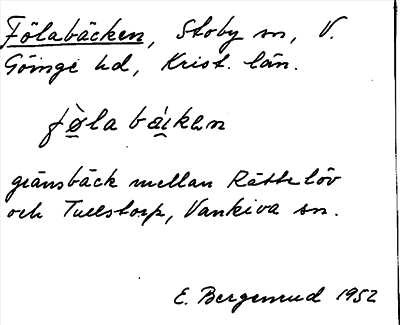 Fölabäcken, Stoby sn, V.
Göinge hd, Krist. län.
fø̀la bákən
gränsbäck mellan Rättelöv
och Tullstorp, Vankiva sn.
E. Bergenrud 1952